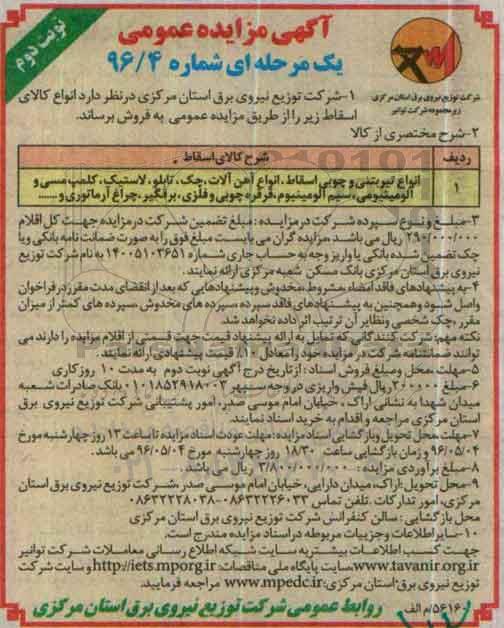 نوبت دوم
آگهی مزایده عمومی
یک مرحله ای شماره ۹۶/۴
شرکت توزیع نیروی برق استان مرکزی
زیرمجموعه شرکت توانیر
۱-شرکت توزیع نیروی برق استان مرکزی درنظر دارد انواع کالای
اسقاط زیر را از طریق مزایده عمومی به فروش برساند.
۲-شرح مختصری از کالا
ردیف شرح کالای اسقاط
۱ انواع تیربتنی و چوبی اسقاط، انواع آهن آلات، جک، تابلو، لاستیک، کلمپ مسی و
آلومینیومی، سیم آلومینیوم، قرقره چوبی و فلزی، برقگیر، چراغ آرماتوری و ......
۳-مبلغ و نوع سپرده شرکت در مزایده : مبلغ تضمین شرکت در مزایده جهت کل اقلام
۲۹۰/۰۰۰/۰۰۰ ریال می باشد .مزایده گران می بایست مبلغ فوق را به صورت ضمانت نامه بانکی ویا
چک تضمین شده بانکی یا واریز وجه به حساب جاری شماره ۱۴۰۰۵۱۰۳۶۵۱ به نام شرکت توزیع
نیروی برق استان مرکزی بانک مسکن شعبه مرکزی ارائه نمایند.
۴-به پیشنهادهای فاقد امضاء،مشروط،مخدوش وپیشنهادهایی که بعد از انقضای مدت مقرر در فراخوان
واصل شود و همچنین به پیشنهادهای فاقد سپرده ،سپرده های مخدوش ،سپرده های کمتر از میزان
مقرر ،چک شخصی ونظایر آن ترتیب اثر داده نخواهد شد.
نکته مهم: شرکت کنندگانی که تمایل به ارائه پیشنهاد قیمت جهت قسمتی از اقلام مزایده را دارند می
توانند ضمانتنامه شرکت در مزایده خود را معادل ۱۰٪ قیمت پیشنهادی ارائه نمایند.
۵-مهلت ،محل ومبلغ فروش اسناد : از تاریخ درج آگهی نوبت دوم به مدت ۱۰ روز کاری
۶-مبلغ ۲۰۰۰۰۰ ریال فیش واریزی در وجه سپهر ۰۱۰۱۸۵۲۹۱۸۰۰۳ بانک صادرات شعبه
میدان شهدا به نشانی اراک ، خیابان امام موسی صدر، امور پشتیبانی شرکت توزیع نیروی برق
استان مرکزی مراجعه و اقدام به خرید اسناد نمایند.
۷-مهلت محل تحویل وبازگشایی اسناد مزایده :مهلت عودت اسناد مزایده تا ساعت ۱۳ روز چهارشنبه مورخ
۹۶/۰۵/۰۴ و زمان بازگشایی ساعت ۱۸/۳۰ روز چهارشنبه مورخ ۹۶/۰۵/۰۴ می باشد.
۸-مبلغ برآوردی مزایده : ۳/۸۰۰/۰۰۰/۰۰۰ ریال می باشد.
۹-محل تحویل :اراک، میدان دارایی، خیابان امام موسی صدر ،شرکت توزیع نیروی برق استان
مرکزی، امور تدارکات .تلفن تماس ۰۸۶۳۲۲۲۶۰۳۳-۰۸۶۳۲۲۲۸۰۳۸
محل بازگشایی : سالن کنفرانس شرکت توزیع نیروی برق استان مرکزی
۱۰-سایر اطلاعات وجزییات مربوطه در اسناد مزایده مندرج است.
جهت کسب اطلاعات بیشتر به سایت شبکه اطلاع رسانی معاملات شرکت توانیر
www.tavanir.org.ir سایت پایگاه ملی مناقصات: http://iets.mporg.ir و سایت شرکت
توزیع نیروی برق استان مرکزی: www.mpedc.ir مراجعه فرمایید.
۵۶۱۶/م الف
روابط عمومی شرکت توزیع نیروی برق استان مرکزی